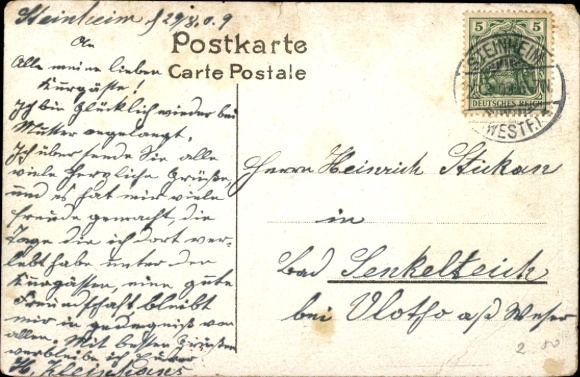 Steinheim d 29/8.0.9
An
Alle meine lieben
Kurgäste!
Ich bin Glücklich wieder bei
Mutter angelangt,
Ich über sende Sie alle
viele Herzliche Grüße,
und es hat mir viele
freude gemacht, die
Tage die ich dort ver-
lebt habe unter den
Kurgästen, eine gute
Freundschaft bleibt
mir in gedegniß von
allen. Mit besten Grüßen
verbleibe ich Euer
H. Kleinhans
Postkarte
Carte Postale
5 5
DEUTSCHES REICH
STEINHEIM
(WESTF.)
Herrn Heinrich Stukan
in
Bad Senkelteich
bei Vlotho a/d Weser
2 50